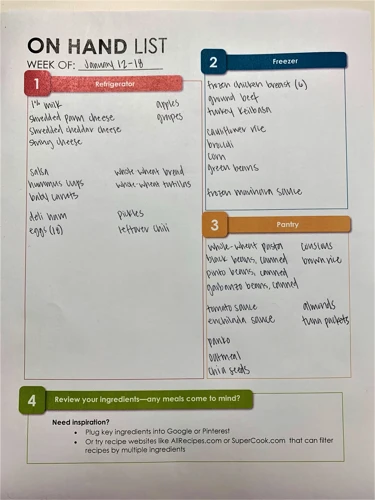 ON HAND LIST
WEEK OF: January 12-18
1 Refrigerator
1% milk apples
shredded parm cheese grapes
shredded cheddar cheese
string cheese
salsa whole wheat bread
hummus cups whole-wheat tortillas
baby carrots
deli ham pickles
eggs (18) leftover chili
2 Freezer
frozen chicken breast (6)
ground beef
turkey keilbasa
cauliflower rice
broccoli
corn
green beans
frozen marinara sauce
3 Pantry
whole-wheat pasta couscous
black beans, canned brown rice
pinto beans, canned
garbanzo beans, canned
tomato sauce almonds
enchilada sauce tuna packets
panko
oatmeal
chia seeds
4 Review your ingredients—any meals come to mind?
Need inspiration?
• Plug key ingredients into Google or Pinterest
• Or try recipe websites like AllRecipes.com or SuperCook.com that can filter
recipes by multiple ingredients